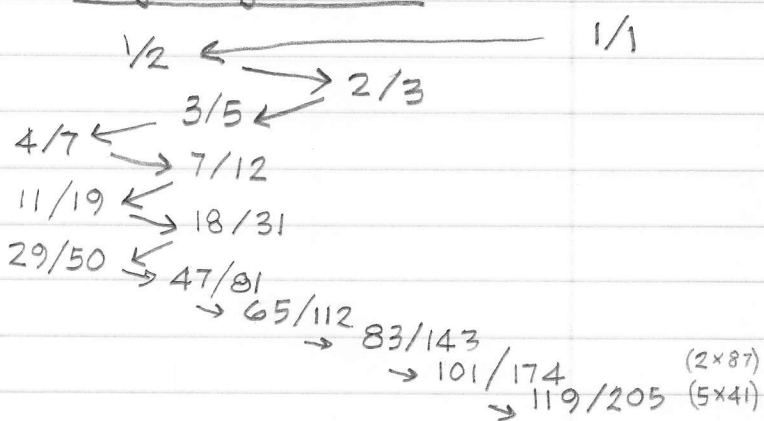 1/2 ← 1/1
→ 2/3
3/5 ←
4/7 ←
→ 7/12
11/19 ←
→ 18/31
29/50 ←
→ 47/81
→ 65/112
→ 83/143
→ 101/174 (2×87)
→ 119/205 (5×41)